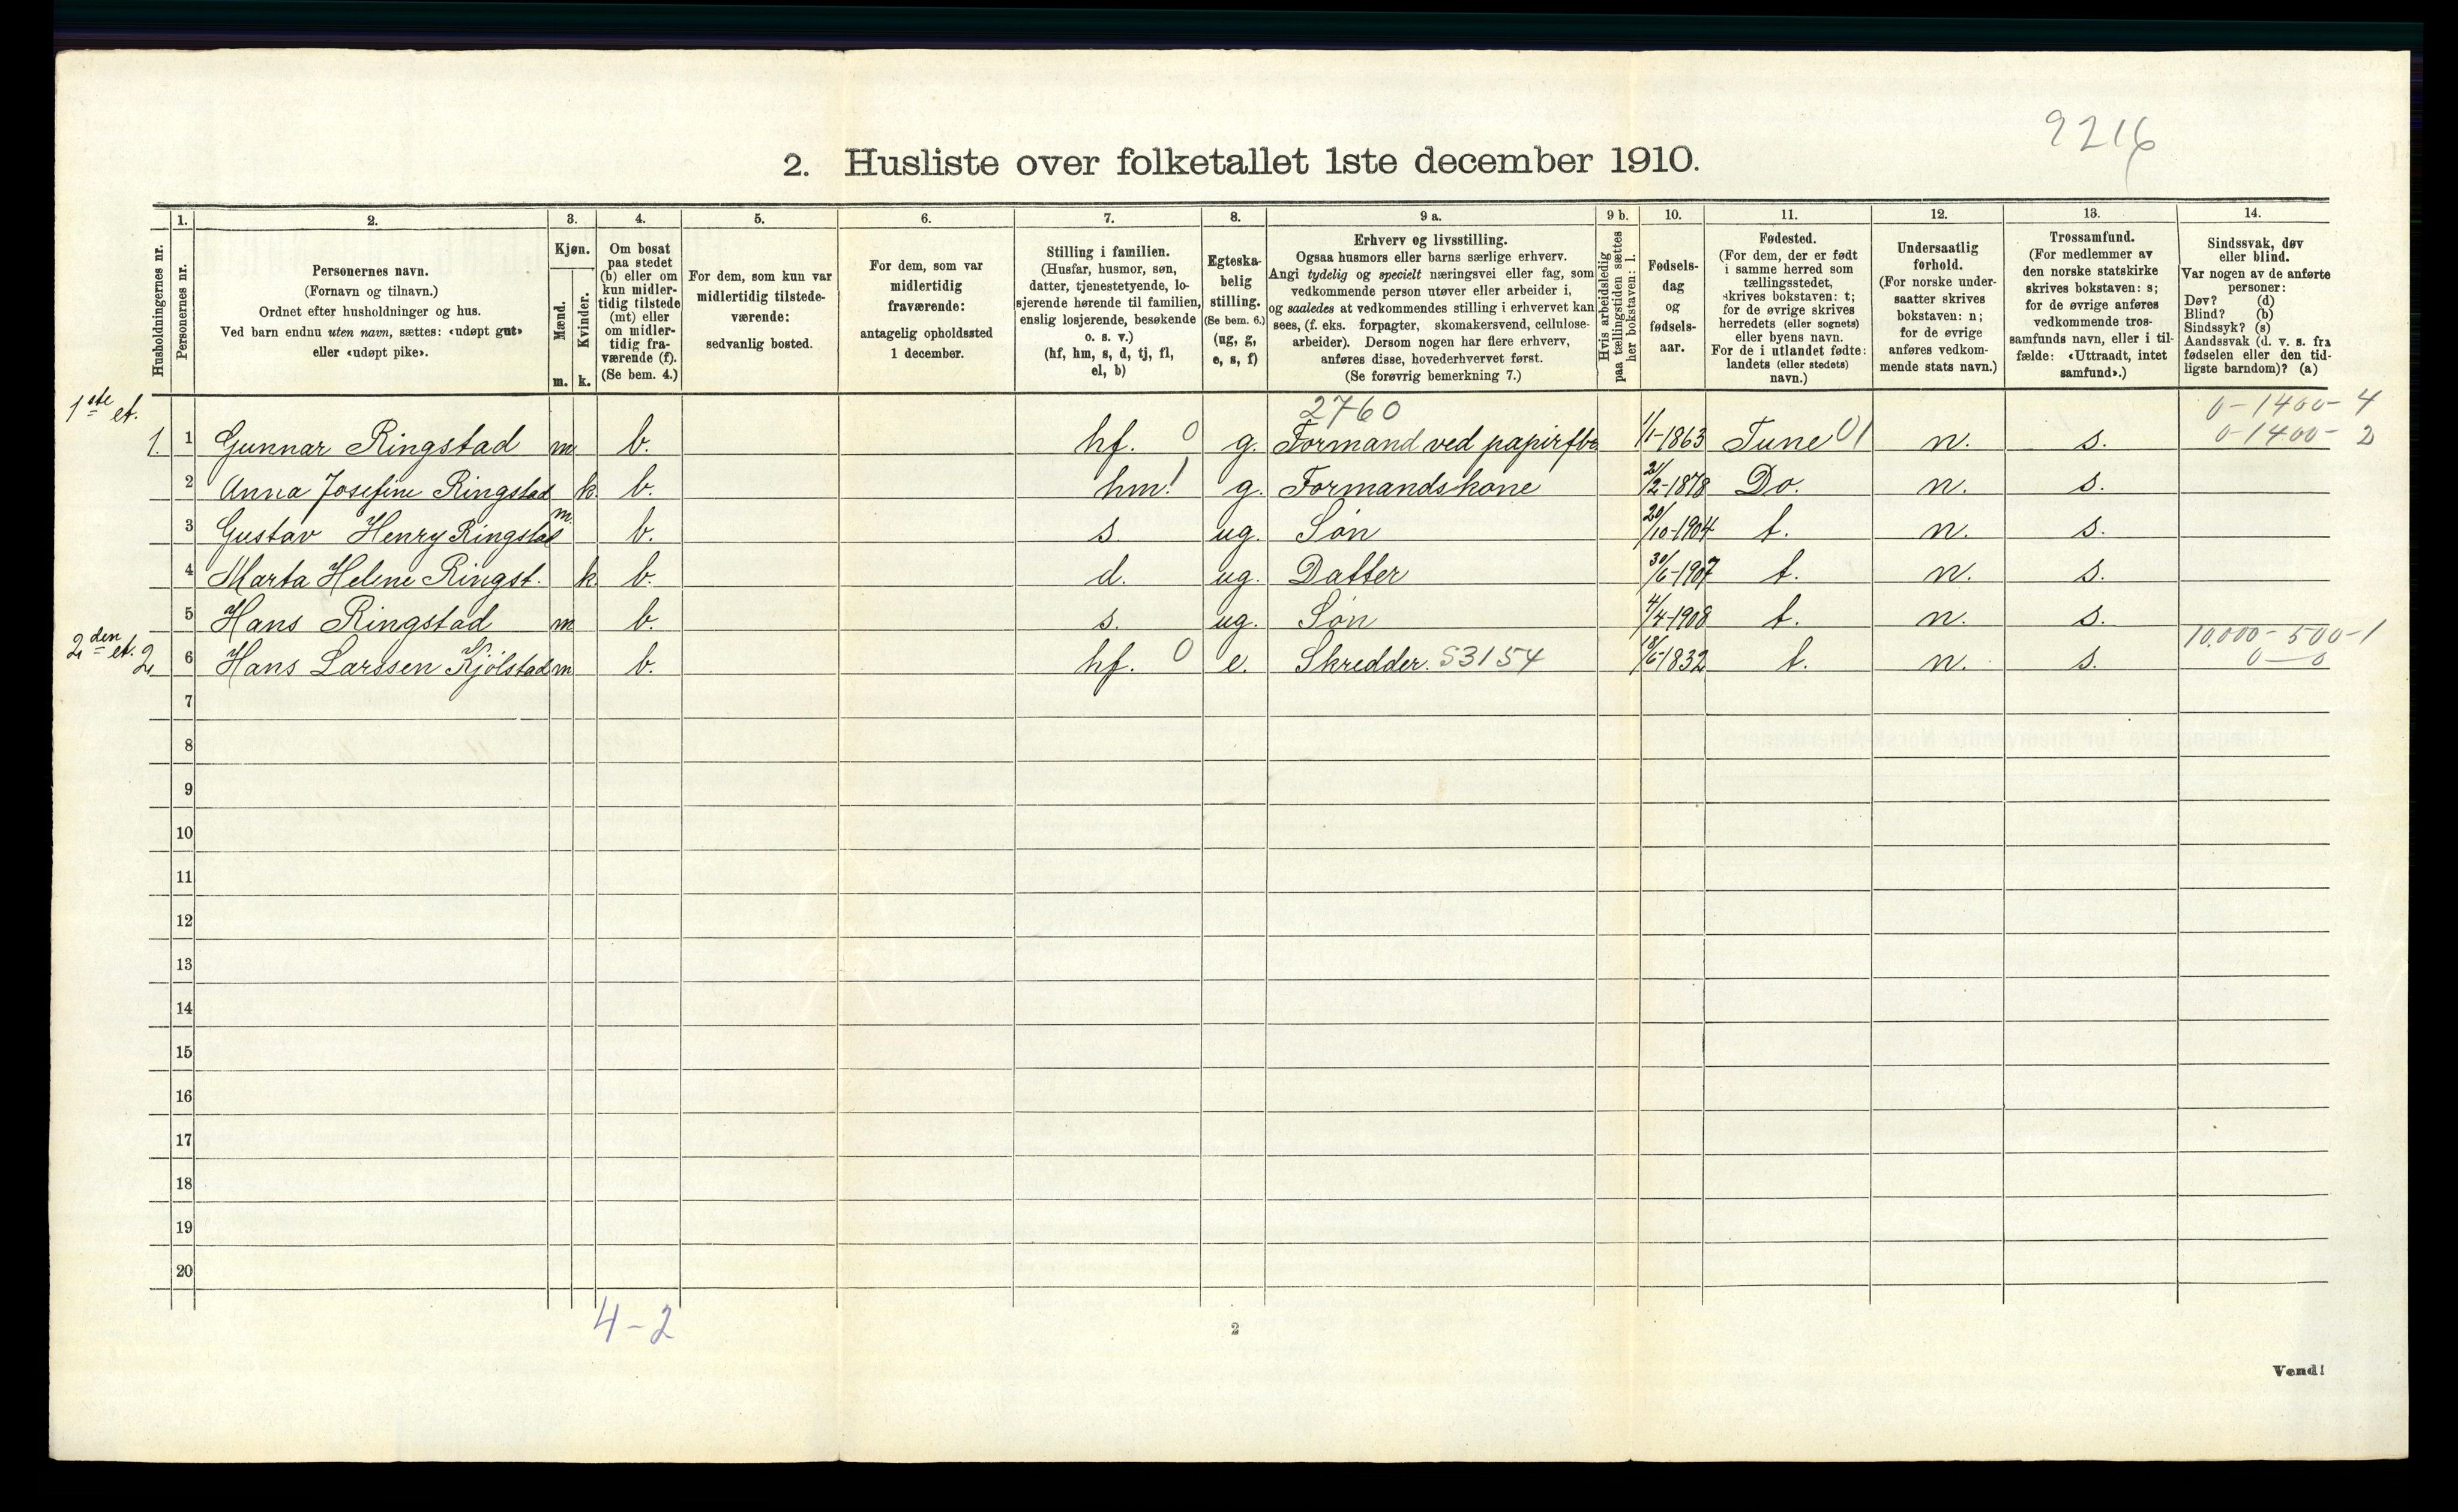 9216
2. Husliste over folketallet 1ste december 1910.
Husholdningernes nr.
1.
Personernes nr.
2.
Personernes navn.
(Fornavn og tilnavn.)
Ordnet efter husholdninger og hus.
Ved barn endnu uten navn, sættes: «udøpt gut»
eller «udøpt pike».
3.
Kjøn.
Mænd.
Kvinder.
m. k.
4.
Om bosat
paa stedet
(b) eller om
kun midler-
tidig tilstede
(mt) eller
om midler-
tidig fra-
værende (f).
(Se bem. 4.)
5.
For dem, som kun var
midlertidig tilstede-
værende:
sedvanlig bosted.
6.
For dem, som var
midlertidig
fraværende:
antagelig opholdssted
1 december.
7.
Stilling i familien.
(Husfar, husmor, søn,
datter, tjenestetyende, lo-
sjerende hørende til familien,
enslig losjerende, besøkende
o. s. v.)
(hf, hm, s, d, tj, fl,
el, b)
8.
Egteska-
belig
stilling.
(Se bem. 6.)
(ug, g,
e, s, f)
9 a.
Erhverv og livsstilling.
Ogsaa husmors eller barns særlige erhverv.
Angi tydelig og specielt næringsvei eller fag, som
vedkommende person utøver eller arbeider i,
og saaledes at vedkommendes stilling i erhvervet kan
sees, (f. eks. forpagter, skomakersvend, cellulose-
arbeider). Dersom nogen har flere erhverv,
anføres disse, hovederhvervet først.
(Se forøvrig bemerkning 7.)
9 b.
Hvis arbeidsledig
paa tællingstiden sættes
her bokstaven: l.
10.
Fødsels-
dag
og
fødsels-
aar.
11.
Fødested.
(For dem, der er født
i samme herred som
tællingsstedet,
skrives bokstaven: t;
for de øvrige skrives
herredets (eller sognets)
eller byens navn.
For de i utlandet fødte:
landets (eller stedets)
navn.)
12.
Undersaatlig
forhold.
(For norske under-
saatter skrives
bokstaven: n;
for de øvrige
anføres vedkom-
mende stats navn.)
13.
Trossamfund.
(For medlemmer av
den norske statskirke
skrives bokstaven: s;
for de øvrige anføres
vedkommende tros-
samfunds navn, eller i til-
fælde: «Uttraadt, intet
samfund».)
14.
Sindssvak, døv
eller blind.
Var nogen av de anførte
personer:
Døv? (d)
Blind? (b)
Sindssyk? (s)
Aandssvak (d. v. s. fra
fødselen eller den tid-
ligste barndom)? (a)
1ste et. 2760 0-1400-4
1. 1 Gunnar Ringstad m b. hf. 0 g. Formand ved papirfbr 1/1-1863 Tune 01 n. s. 0-1400-2
2 Anna Josefine Ringstad k. b. hm. 1 g. Formandskone 2/2-1878 Do. n. s.
3 Gustav Henry Ringstad m. b. s. ug. Søn 20/10-1904 t. n. s.
4 Marta Helene Ringst. k. b. d. ug. Datter 30/6-1907 t. n. s.
5 Hans Ringstad m b. s. ug. Søn 4/4-1908 t. n. s.
2den et. 10.000-500-1
2 6 Hans Larssen Kjølstad m b. hf. 0 e. Skredder. S3154 18/6-1832 t. n. s. 0-0
7
8
9
10
11
12
13
14
15
16
17
18
19
20
4-2
2
Vend!